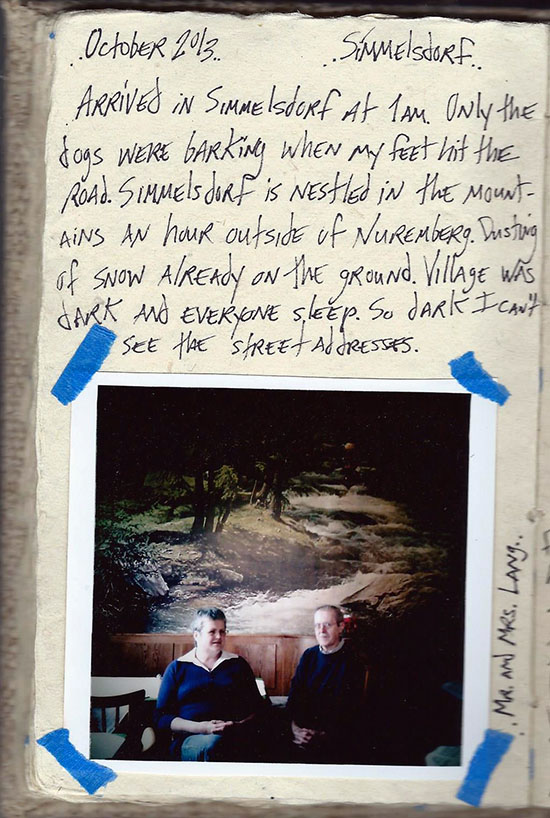 October 2013..
..Simmelsdorf..
Arrived in Simmelsdorf at 1am. Only the
dogs were barking when my feet hit the
road. Simmelsdorf is nestled in the mount-
ains an hour outside of Nuremberg. Dusting
of snow already on the ground. Village was
dark and everyone sleep. So dark I can't
see the street addresses.
..Mr. and Mrs. Lang..